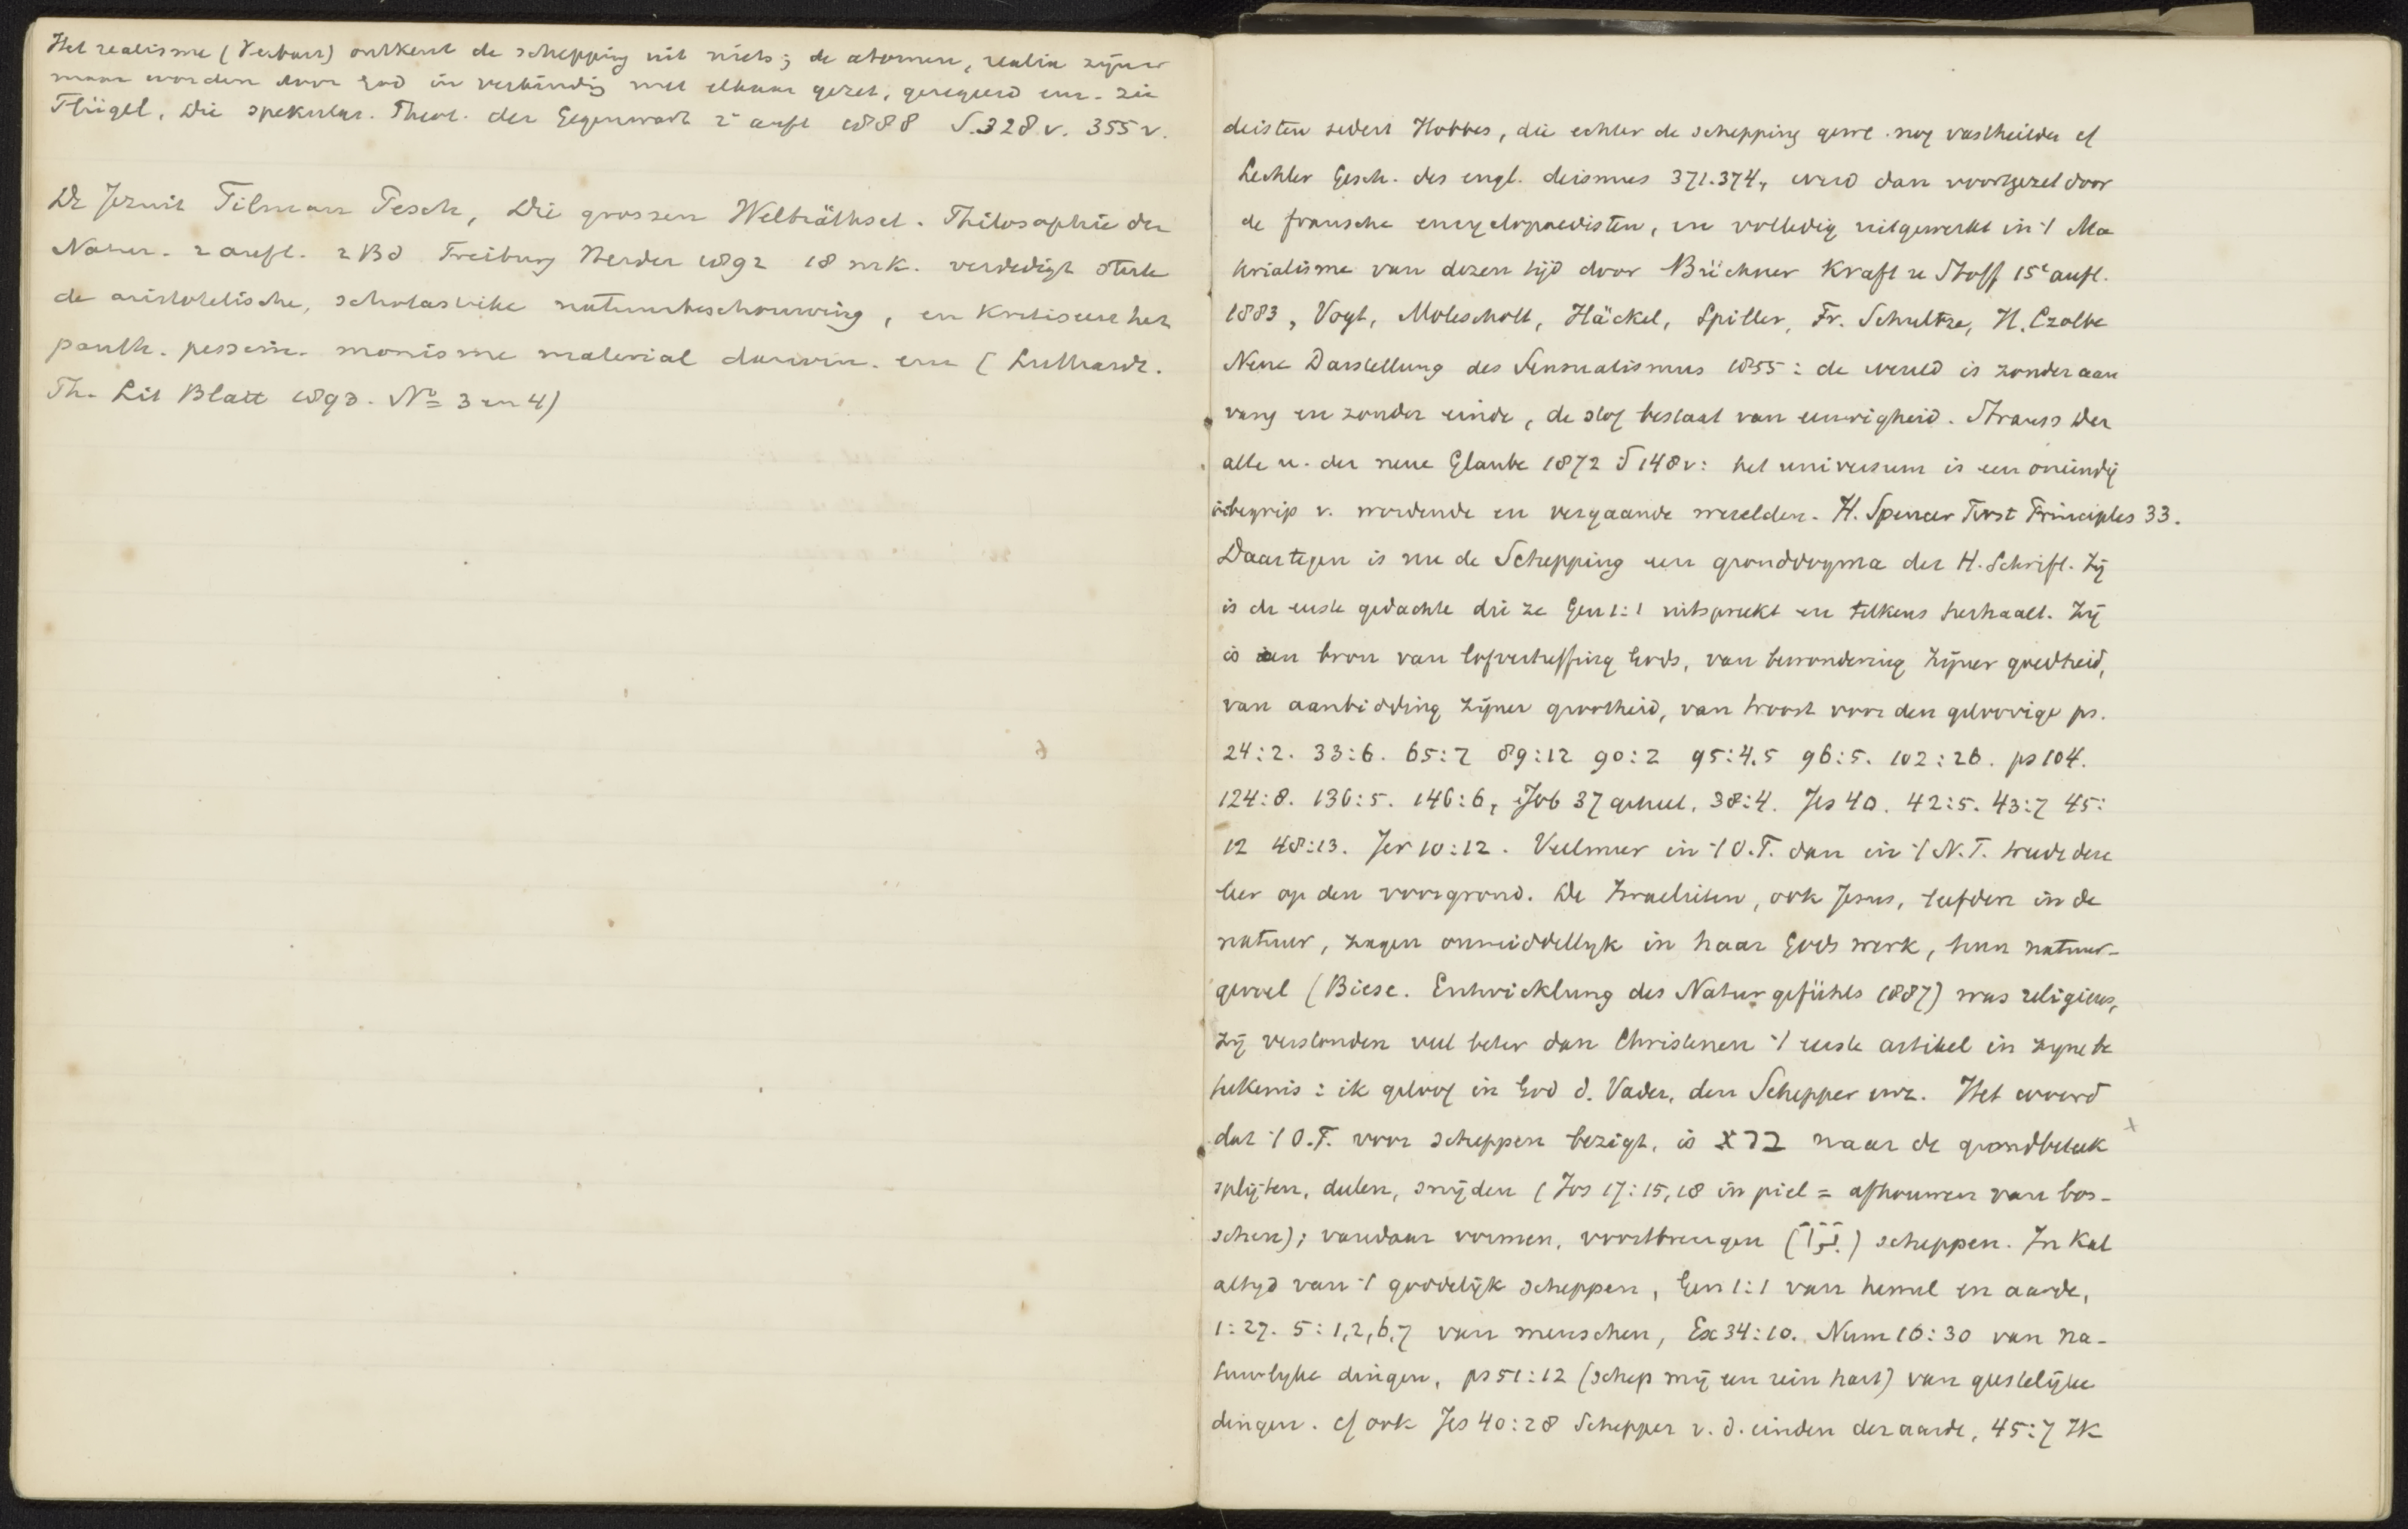 Het realisme (Herbart) ontkent de schepping uit niets; de atomen, realia zijn er
maar worden door God in verbinding met elkaar gezet, geregeerd enz. zie
Flügel, Die spekulat. Theol. der Gegenwart 2e aufl 1888 S. 328 v. 355 v.
De Jezuit Tilman Pesch, Die grossen Welträthsel. Philosophie der
Natur. 2 aufl. 2 Bd Freiburg Herder 1892 18 mk. verdedigt sterk
de aristotelische, scholastike natuurbeschouwing, en kritiseert het
panth. pessim. monisme material darwin. enz (Luthardt.
Th. Lit Blatt 1893. No 3 en 4)
deisten sedert Hobbes, die echter de schepping gew. nog vasthielden cf
Lechler Gesch. des engl. deismus 371.374, werd dan voortgezet door
de fransche encyclopaedisten, en volledig uitgewerkt in 't Ma
terialisme van dezen tijd door Büchner Kraft u Stoff 15e aufl.
1883, Vogt, Moleschott, Häckel, Spiller, Fr. Schultze, H. Czolbe
Neue Darstellung des Sensualismus 1855: de wereld is zonder aan
vang en zonder einde, de stof bestaat van eeuwigheid. Strauss Der
alte u. der neue Glaube 1872 S 148 v: het universum is een oneindig
inbegrip v. wordende en vergaande werelden. H. Spencer First Principles 33.
Daartegen is nu de Schepping een gronddogma der H. Schrift. Zij
is de eerste gedachte die ze Gen 1:1 uitspreekt en telkens herhaalt. Zij
is een bron van lofverheffing Gods, van bewondering zijner goedheid,
van aanbidding zijner grootheid, van troost voor den geloovige ps.
24:2. 33:6. 65:7 89:12 90:2 95:4.5 96:5. 102:26. ps 104.
124:8. 136:5. 146:6, Job 37 geheel, 38:4. Jes 40. 42:5. 43:7 45:
12 48:13. Jer 10:12. Veelmeer in 't O.T. dan in 't N.T. treedt deze
leer op den voorgrond. De Israelieten, ook Jesus, leefden in de
natuur, zagen onmiddellijk in haar Gods werk, hun natuur-
gevoel (Biese. Entwicklung des Naturgefühls 1887) was religieus,
zij verstonden veel beter dan Christenen 't eerste artikel in zijne be
teekenis: ik geloof in God d. Vader, den Schepper enz. Het woord
dat 't O.T. voor scheppen bezigt, is ברא naar de grondbeteek
splijten, deelen, snijden (Jos 17:15,18 in piel = afhouwen van bos-
schen); vandaar vormen, voortbrengen ( ) scheppen. In Kal
altijd van 't goddelijk scheppen, Gen 1:1 van hemel en aarde,
1:27. 5:1,2,6,7 van menschen, Ex 34:10. Num 16:30 van na-
tuurlijke dingen, ps 51:12 (schep mij een rein hart) van geestelijke
dingen. cf ook Jes 40:28 Schepper v. d. einden der aarde, 45:7 Ik